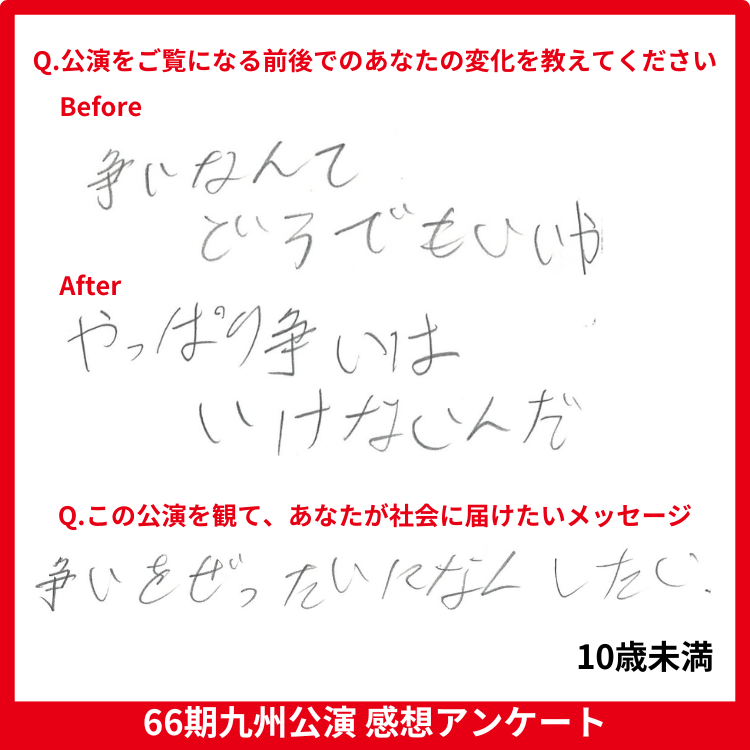 Q.公演をご覧になる前後でのあなたの変化を教えてください
Before
争いなんて
どうでもいいや
After
やっぱり争いは
いけないんだ
Q.この公演を観て、あなたが社会に届けたいメッセージ
争いをぜったいになくしたい.
10歳未満
66期九州公演 感想アンケート